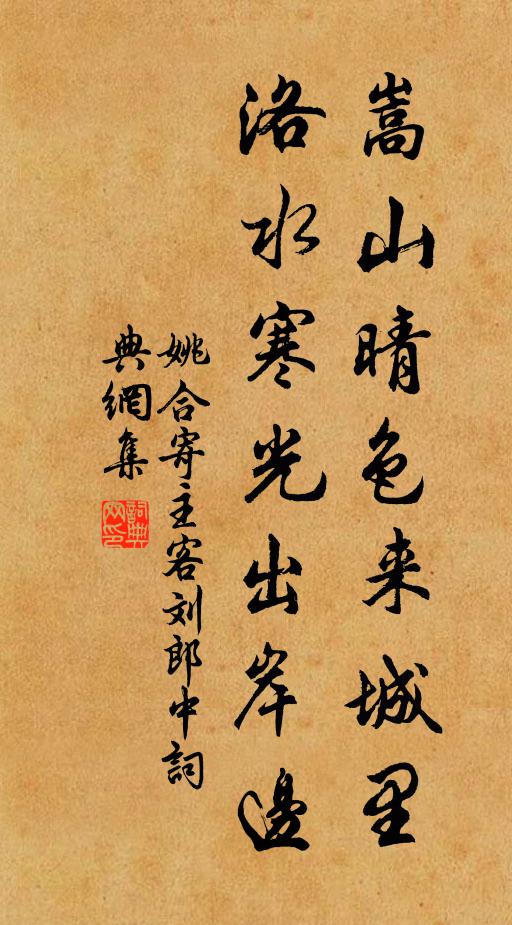 嵩山晴色来城里
洛水寒光出岸邊
姚合寄主客刘郎中詞
典網集
詞典网印